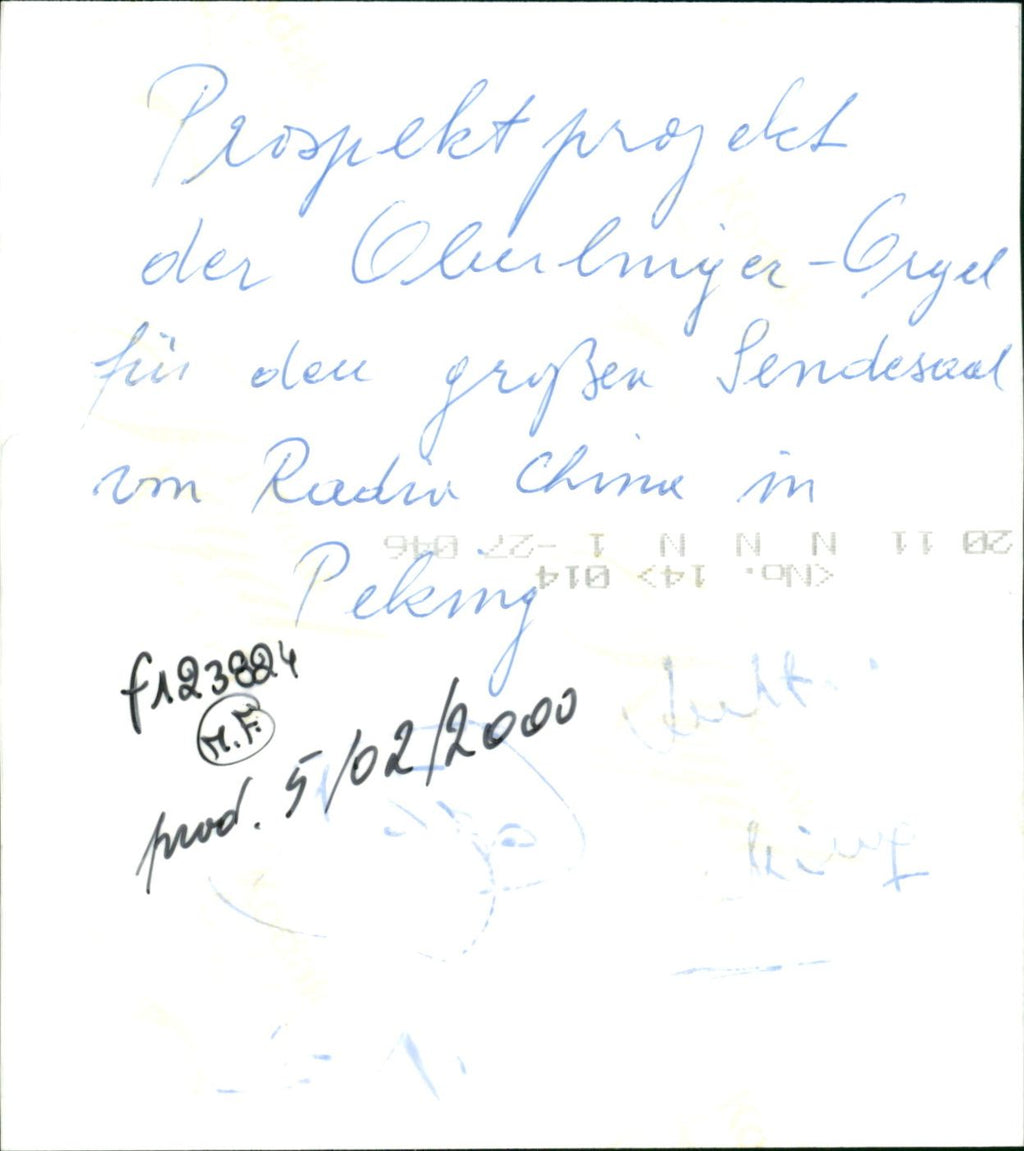 Prospektprojekt
der Oberlinger-Orgel
für den großen Sendesaal
von Radio China in
Peking
20 11 N N N 1 -27 046
<No. 14> 014
f123824
M.F.
prod. 5/02/2000